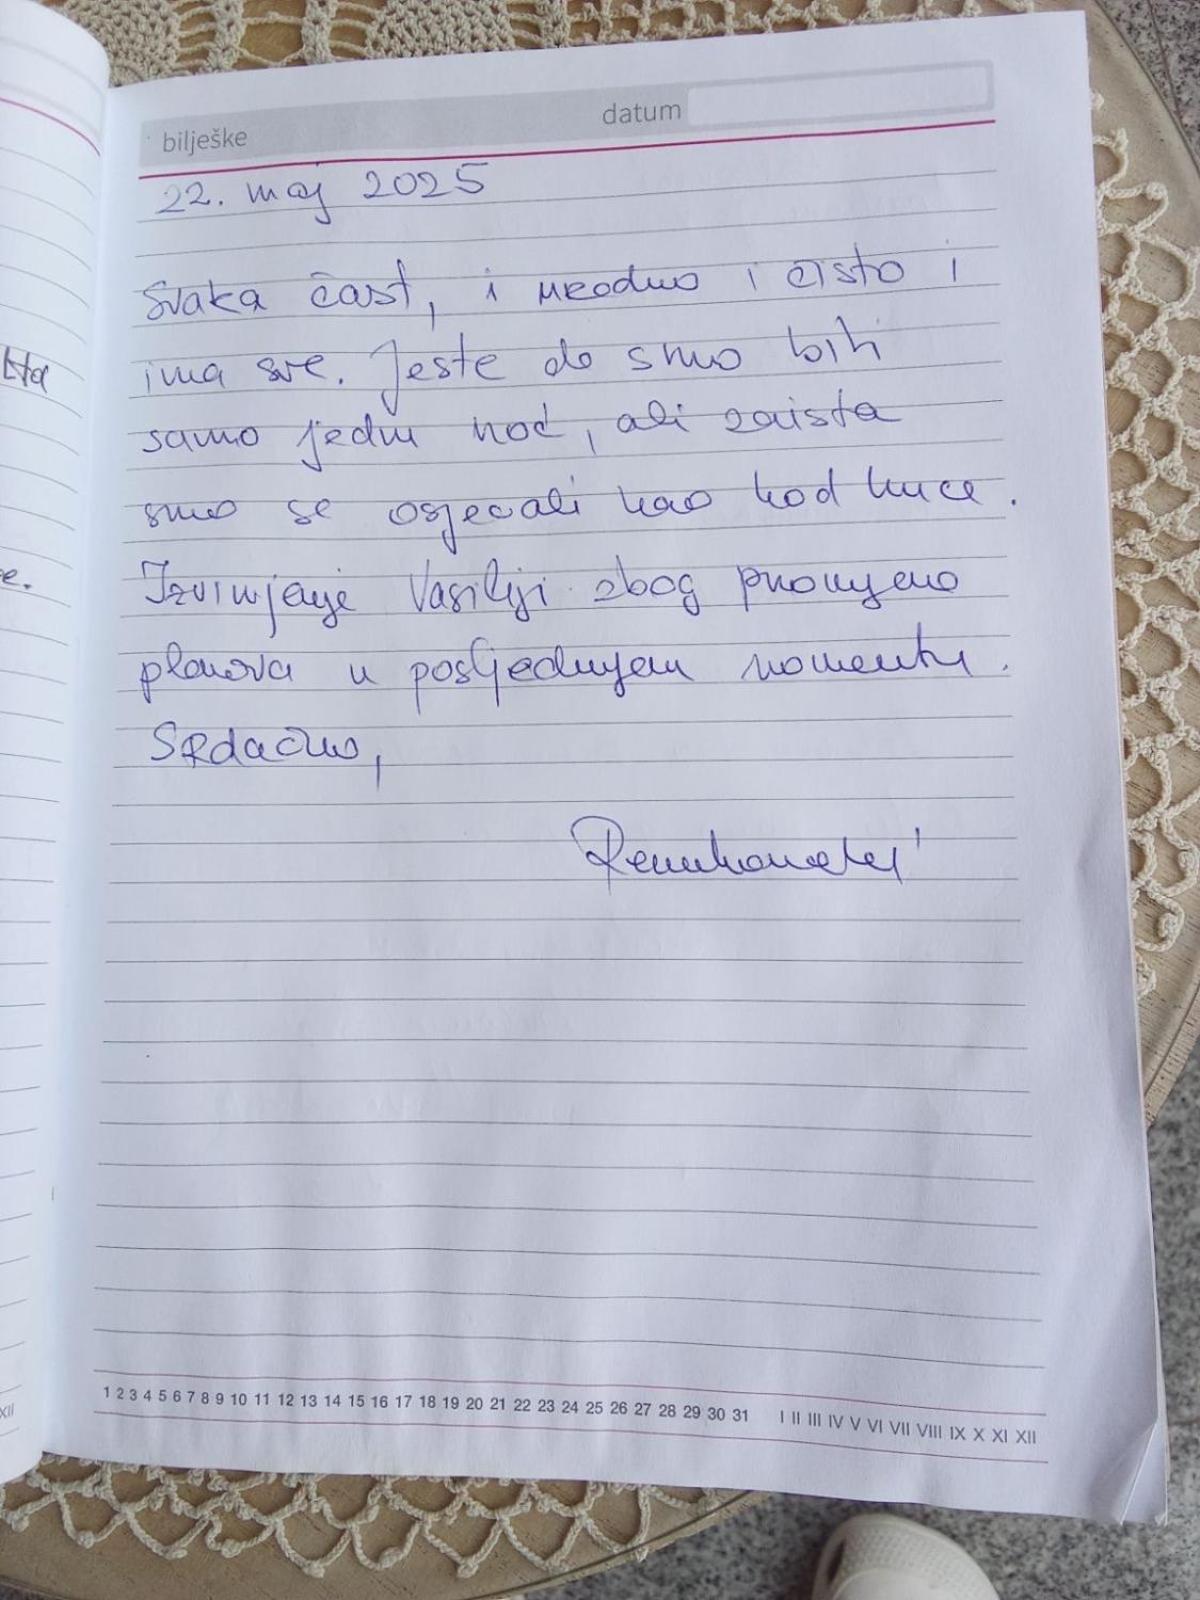 bilješke datum
22. maj 2025
Svaka čast, i uredno i čisto i
ima sve. Jeste da smo bili
samo jednu noć, ali zaista
smo se osjećali kao kod kuće.
Izvinjenje Vasiliji zbog promjena
planova u posljednjem momentu.
Srdačno,
1 2 3 4 5 6 7 8 9 10 11 12 13 14 15 16 17 18 19 20 21 22 23 24 25 26 27 28 29 30 31 I II III IV V VI VII VIII IX X XI XII